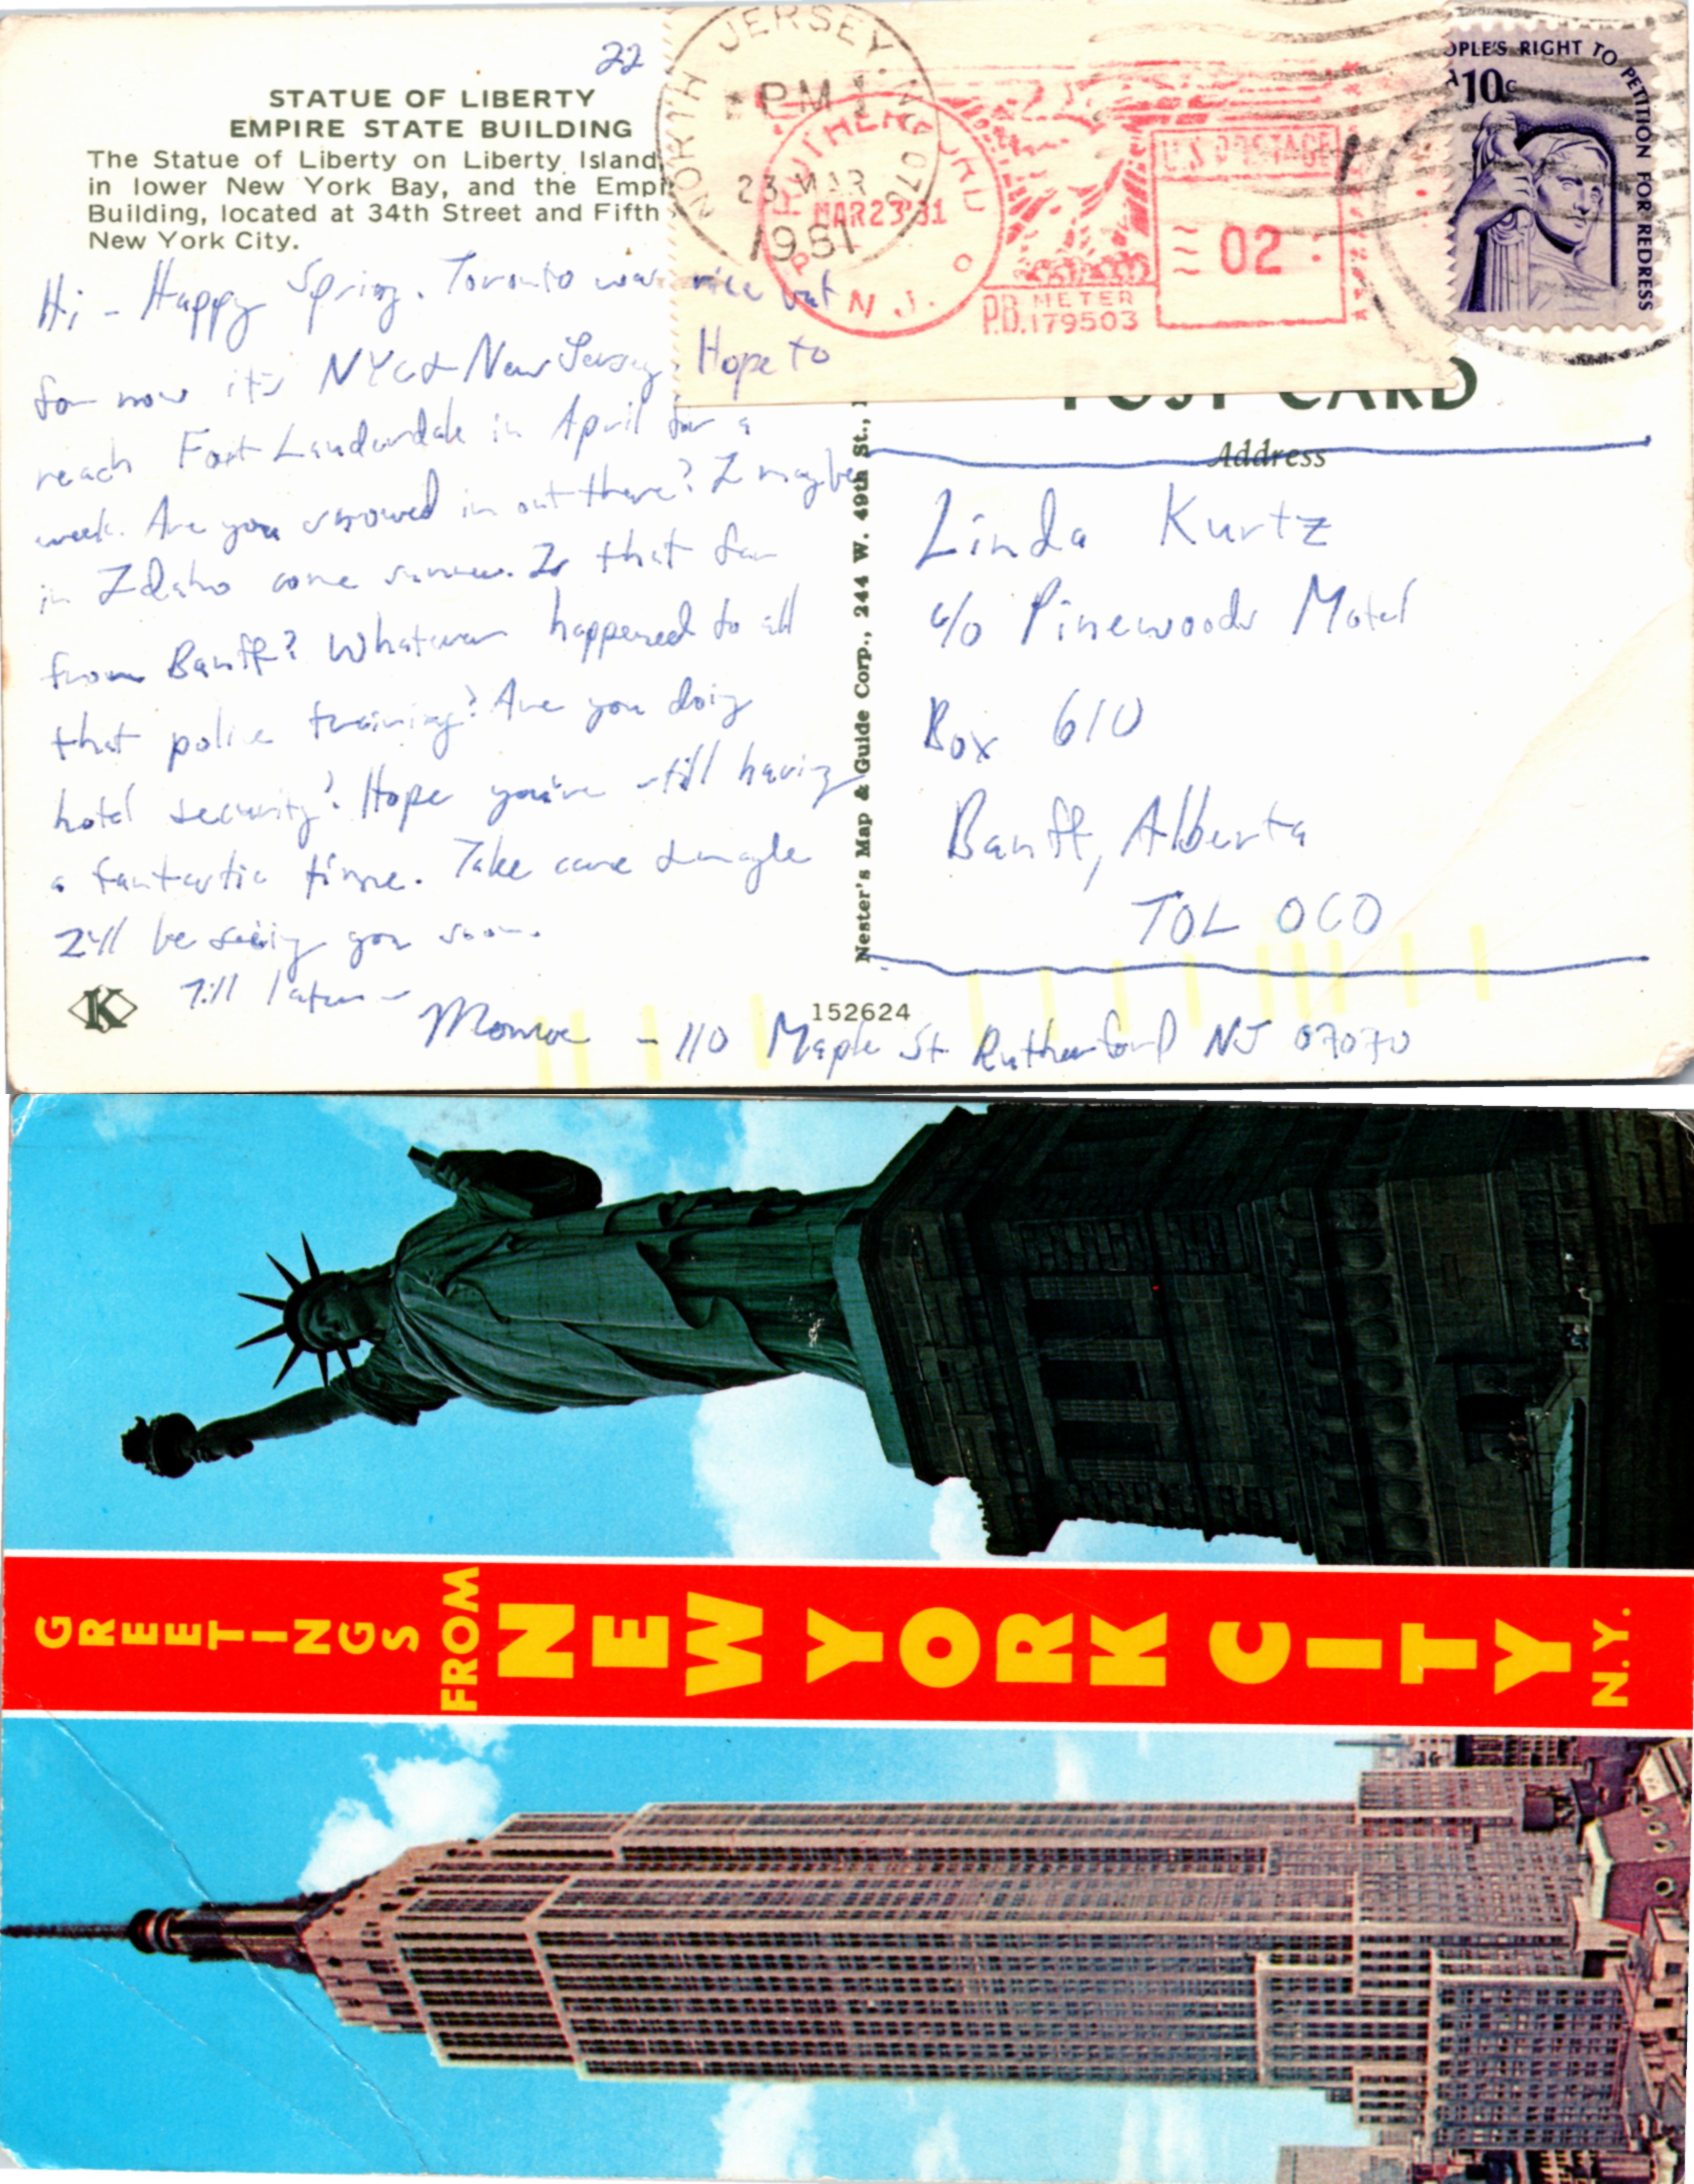 22
STATUE OF LIBERTY
EMPIRE STATE BUILDING
The Statue of Liberty on Liberty Island
in lower New York Bay, and the Empi
Building, located at 34th Street and Fifth
New York City.
Hi - Happy Spring. Toronto was nice but
for now it's NYC & New Jersey. Hope to
reach Fort Lauderdale in April for a
week. Are you snowed in out there? I maybe
in Idaho come summer. Is that far
from Banff? Whatever happened to all
that police training? Are you doing
hotel security? Hope you're still having
a fantastic time. Take care &
I'll be seeing you soon.
Till later -
Monroe - 110 Maple St Rutherford NJ 07070
K
152624
Nester's Map & Guide Corp., 244 W. 49th St.,
NORTH JERSEY, N 070
PM
23 MAR
1981
RUTHERFORD
MAR 23 '81
N.J.
U.S. POSTAGE
02
P.B. METER
179503
OPLE'S RIGHT TO PETITION FOR REDRESS
10c
POST CARD
Address
Linda Kurtz
c/o Pinewoods Motel
Box 610
Banff, Alberta
TOL OCO
GREETINGS FROM NEW YORK CITY N.Y.